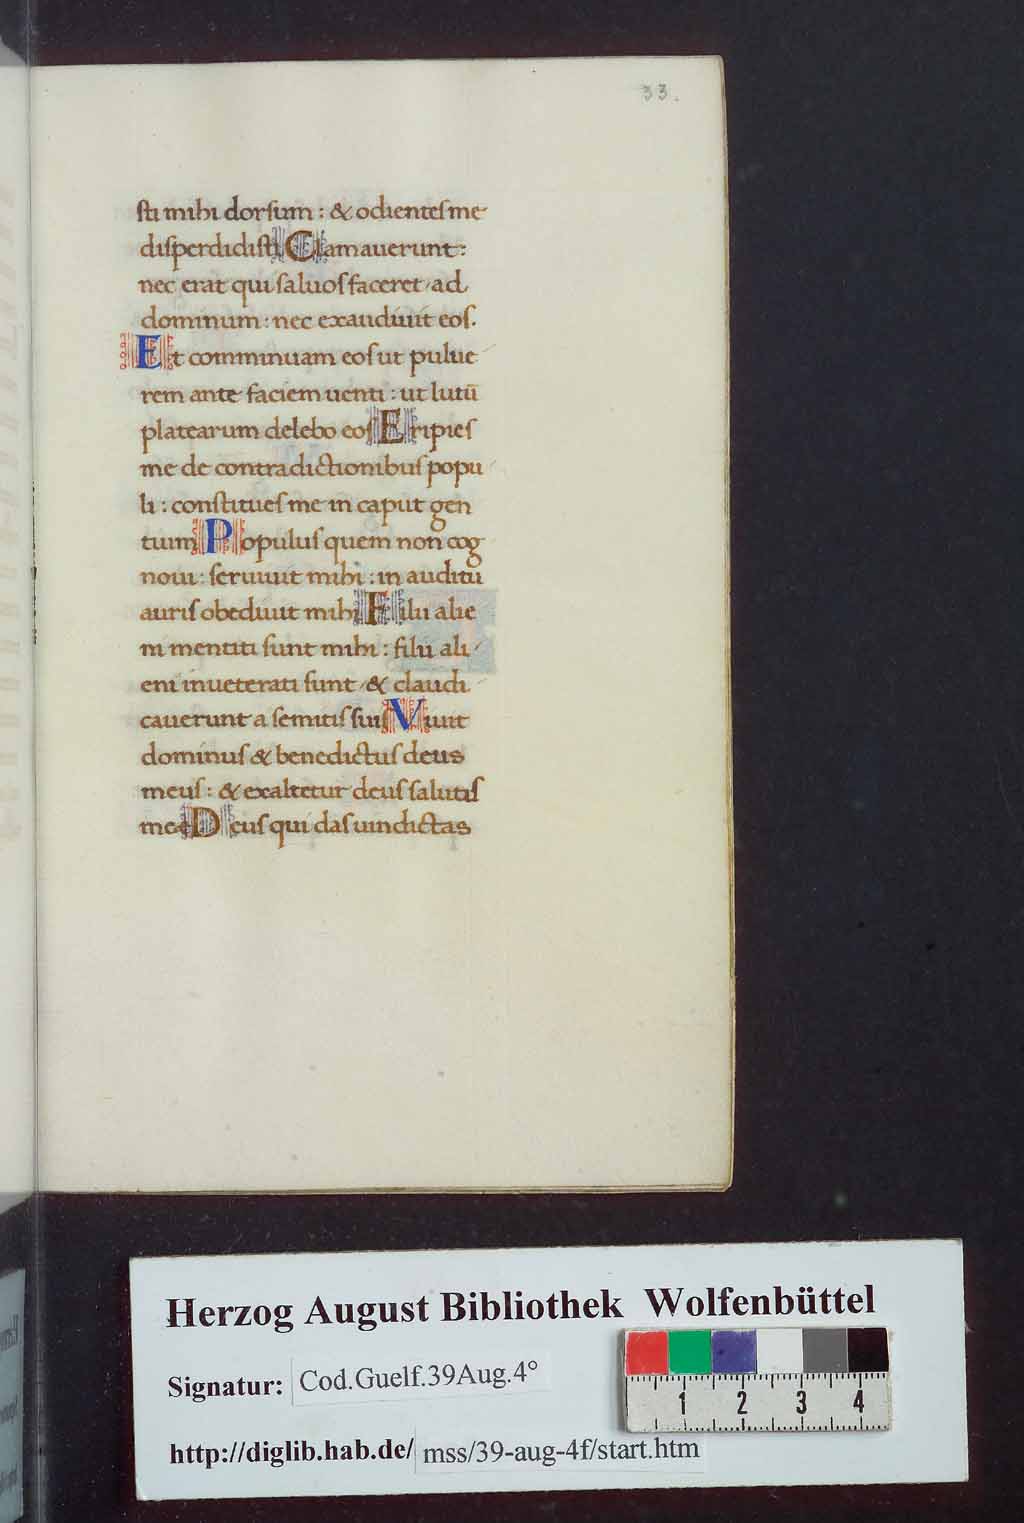 33.
sti mihi dorsum : & odientes me
disperdidisti Clamauerunt :
nec erat qui saluos faceret ad
dominum : nec exaudiuit eos.
Et comminuam eos ut pulue
rem ante faciem uenti : ut lutū
platearum delebo eos Eripies
me de contradictionibus popu
li : constitues me in caput gen
tium Populus quem non cog
noui : seruiuit mihi : in auditu
auris obediuit mihi Filii alie
ni mentiti sunt mihi : filii ali
eni inueterati sunt & claudi
cauerunt a semitis suis Viuit
dominus & benedictus deus
meus : & exaltetur deus salutis
meę Deus qui das uindictas
Herzog August Bibliothek Wolfenbüttel
Signatur: Cod.Guelf.39Aug.4°
1 2 3 4
http://diglib.hab.de/ mss/39-aug-4f/start.htm